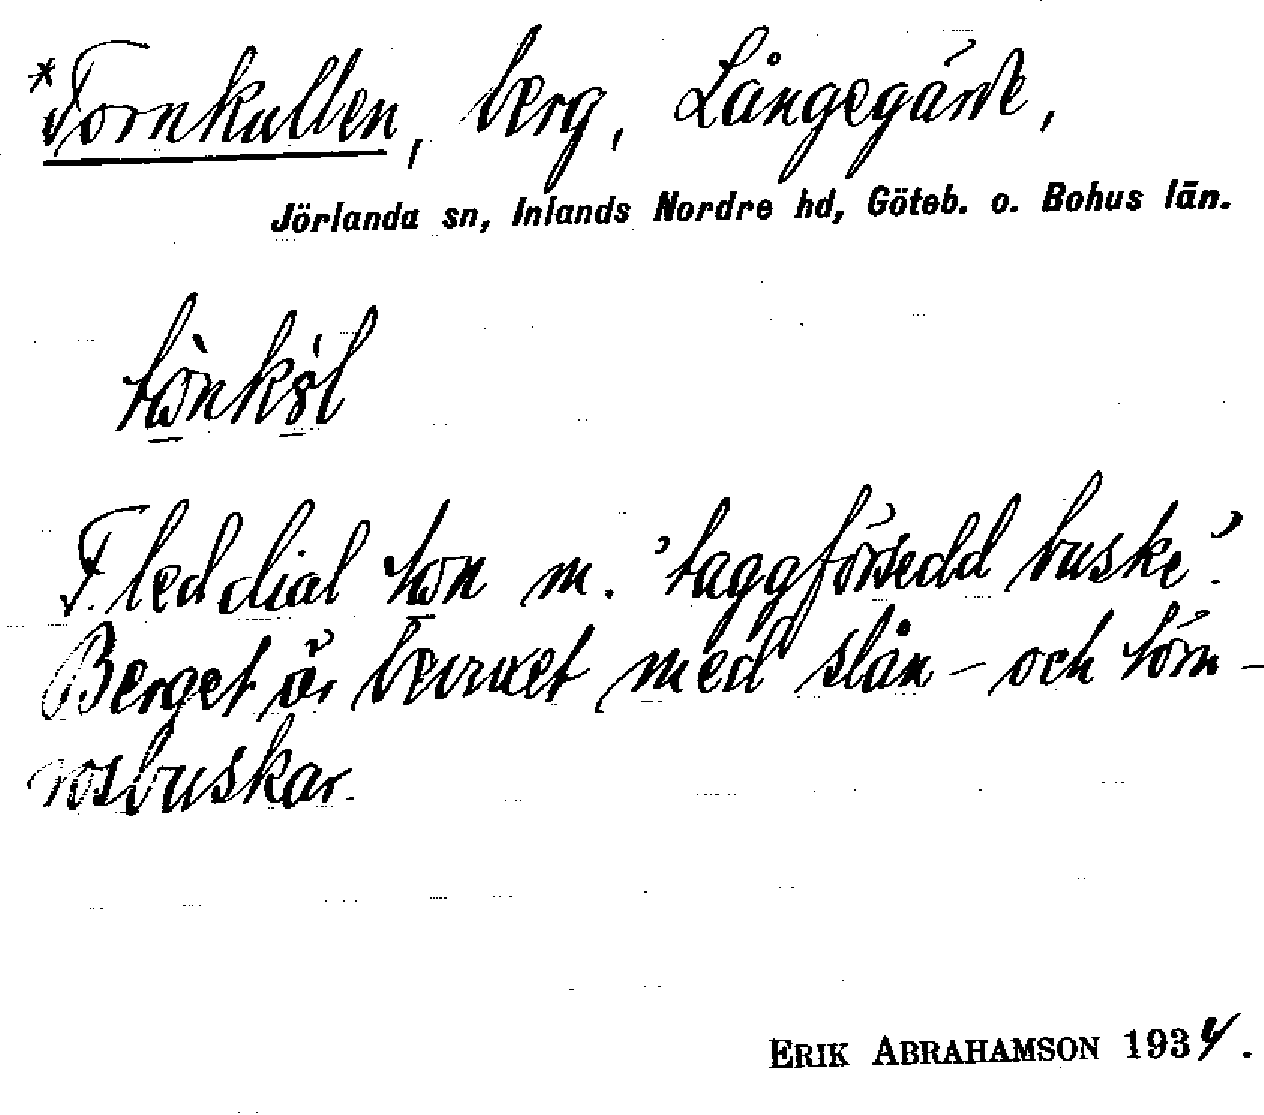 *Tornkullen, berg, Långegärde,
Jörlanda sn, Inlands Nordre hd, Göteb. o. Bohus län.
F. led dial m. 'taggförsedd buske'.
Berget är bevuxet med slån- och törn-
rosbuskar.
ERIK ABRAHAMSON 1934.